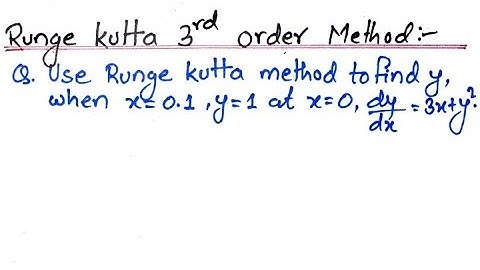 Runge kutta 3rd order Method:-
Q. Use Runge kutta method to find y,
when x = 0.1, y = 1 at x = 0, dy/dx = 3x + y².